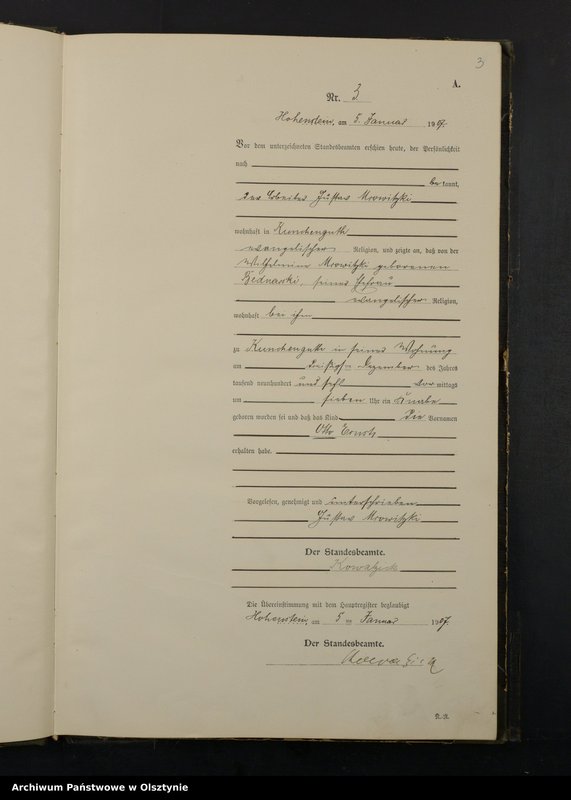 3
A.
Nr. 3
Hohenstein, am 5. Januar 1907.
Vor dem unterzeichneten Standesbeamten erschien heute, der Persönlichkeit
nach
be kannt,
der Arbeiter Gustav Mrowitzki
wohnhaft in Kunchenguth
evangelischer Religion, und zeigte an, daß von der
Wilhelmine Mrowitzki geborenen
Bednarski, seiner Ehefrau
evangelischer Religion,
wohnhaft bei ihm
zu Kunchenguth in seiner Wohnung
am Dezember des Jahres
tausend neunhundert und sechs vor mittags
um sieben Uhr ein Knabe
geboren worden sei und daß das Kind die Vornamen
Otto Ernst
erhalten habe.
Vorgelesen, genehmigt und unterschrieben
Gustav Mrowitzki
Der Standesbeamte.
Kowalzik
Die Übereinstimmung mit dem Hauptregister beglaubigt
Hohenstein, am 5 ten Januar 1907.
Der Standesbeamte.
A.-R.
Archiwum Państwowe w Olsztynie